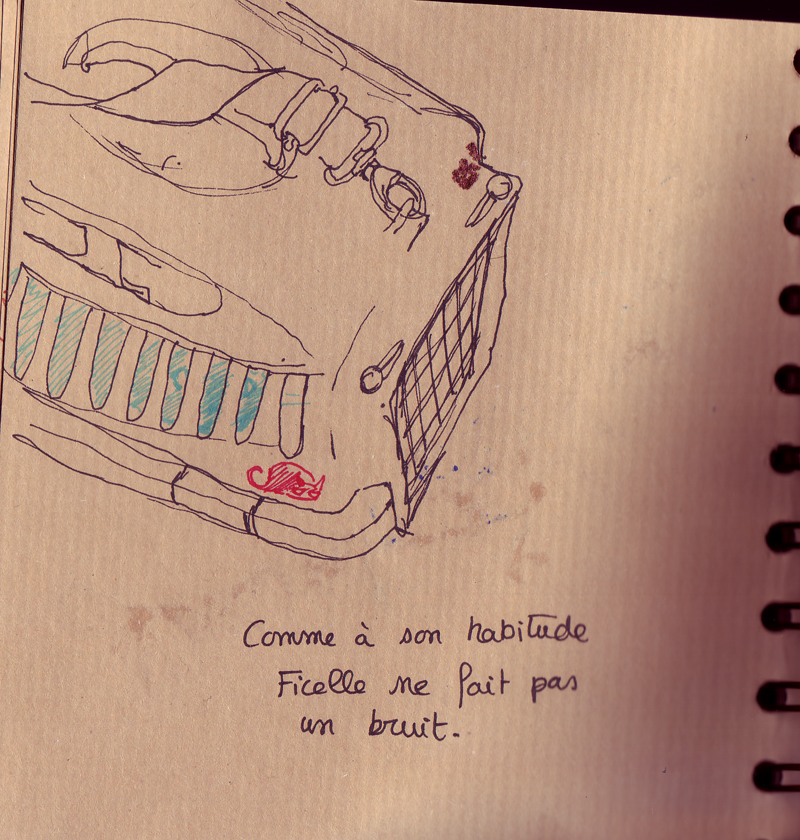 Comme à son habitude
Ficelle ne fait pas
un bruit.